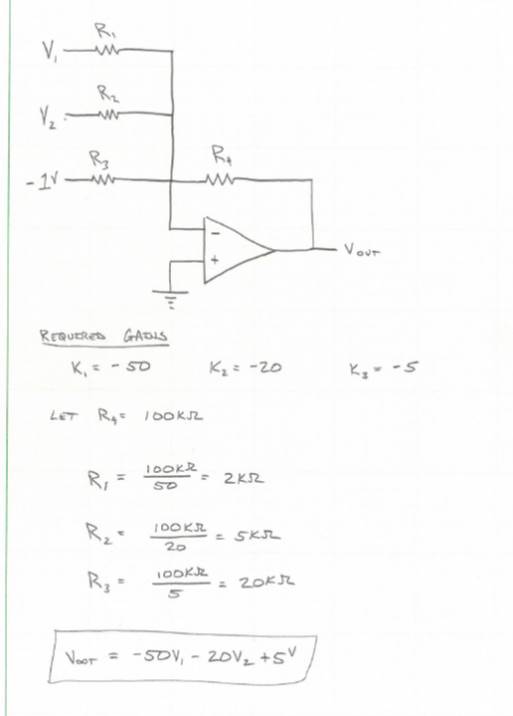 R₁
V₁
R₂
V₂
R₃
R₄
-1V
-
+
VOUT
REQUIRED GAINS
K₁ = -50 K₂ = -20 K₃ = -5
LET R₄ = 100KΩ
R₁ = 100KΩ/50 = 2KΩ
R₂ = 100KΩ/20 = 5KΩ
R₃ = 100KΩ/5 = 20KΩ
VOUT = -50V₁ - 20V₂ + 5V